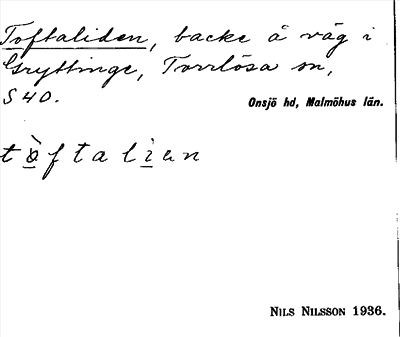 Toftaliden, backe å väg i
Gryttinge, Torrlösa sn,
S 40.
Onsjö hd, Malmöhus län.
tòftalìen
NILS NILSSON 1936.